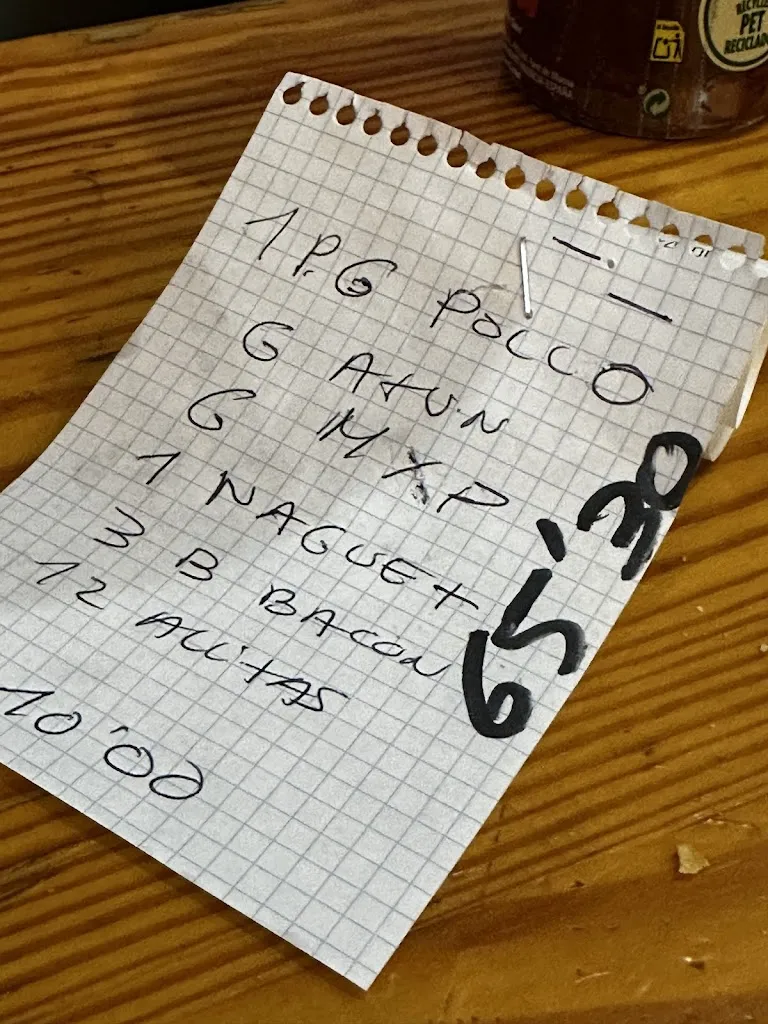 1 P.G POLLO
6 ATUN
6 MXP
1 NAGUET
3 B BACON
12 ALITAS
10'00
65'30
RECYCLE
PET
RECICLADO
ESPAÑA